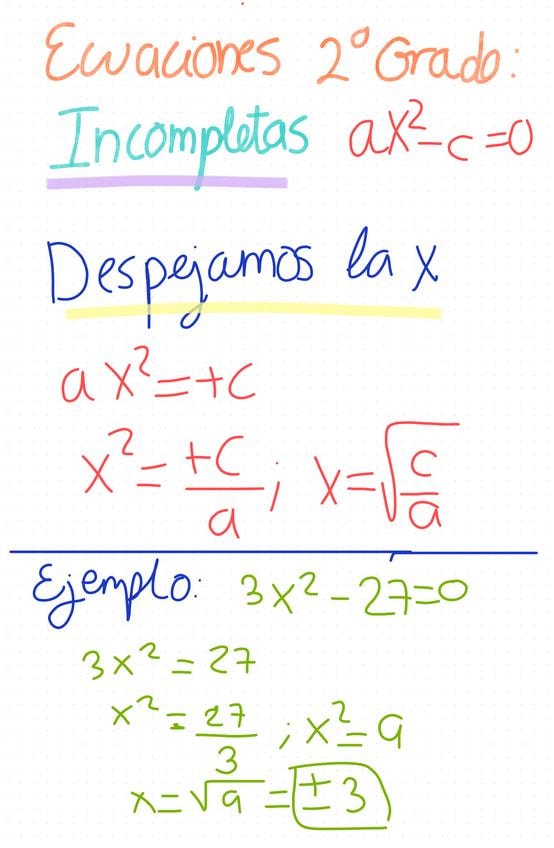 Ecuaciones 2º Grado:
Incompletas ax²-c=0
Despejamos la x
ax²=+c
x²=+c/a; x=√(c/a)
Ejemplo: 3x²-27=0
3x²=27
x²=27/3; x²=9
x=√9=±3